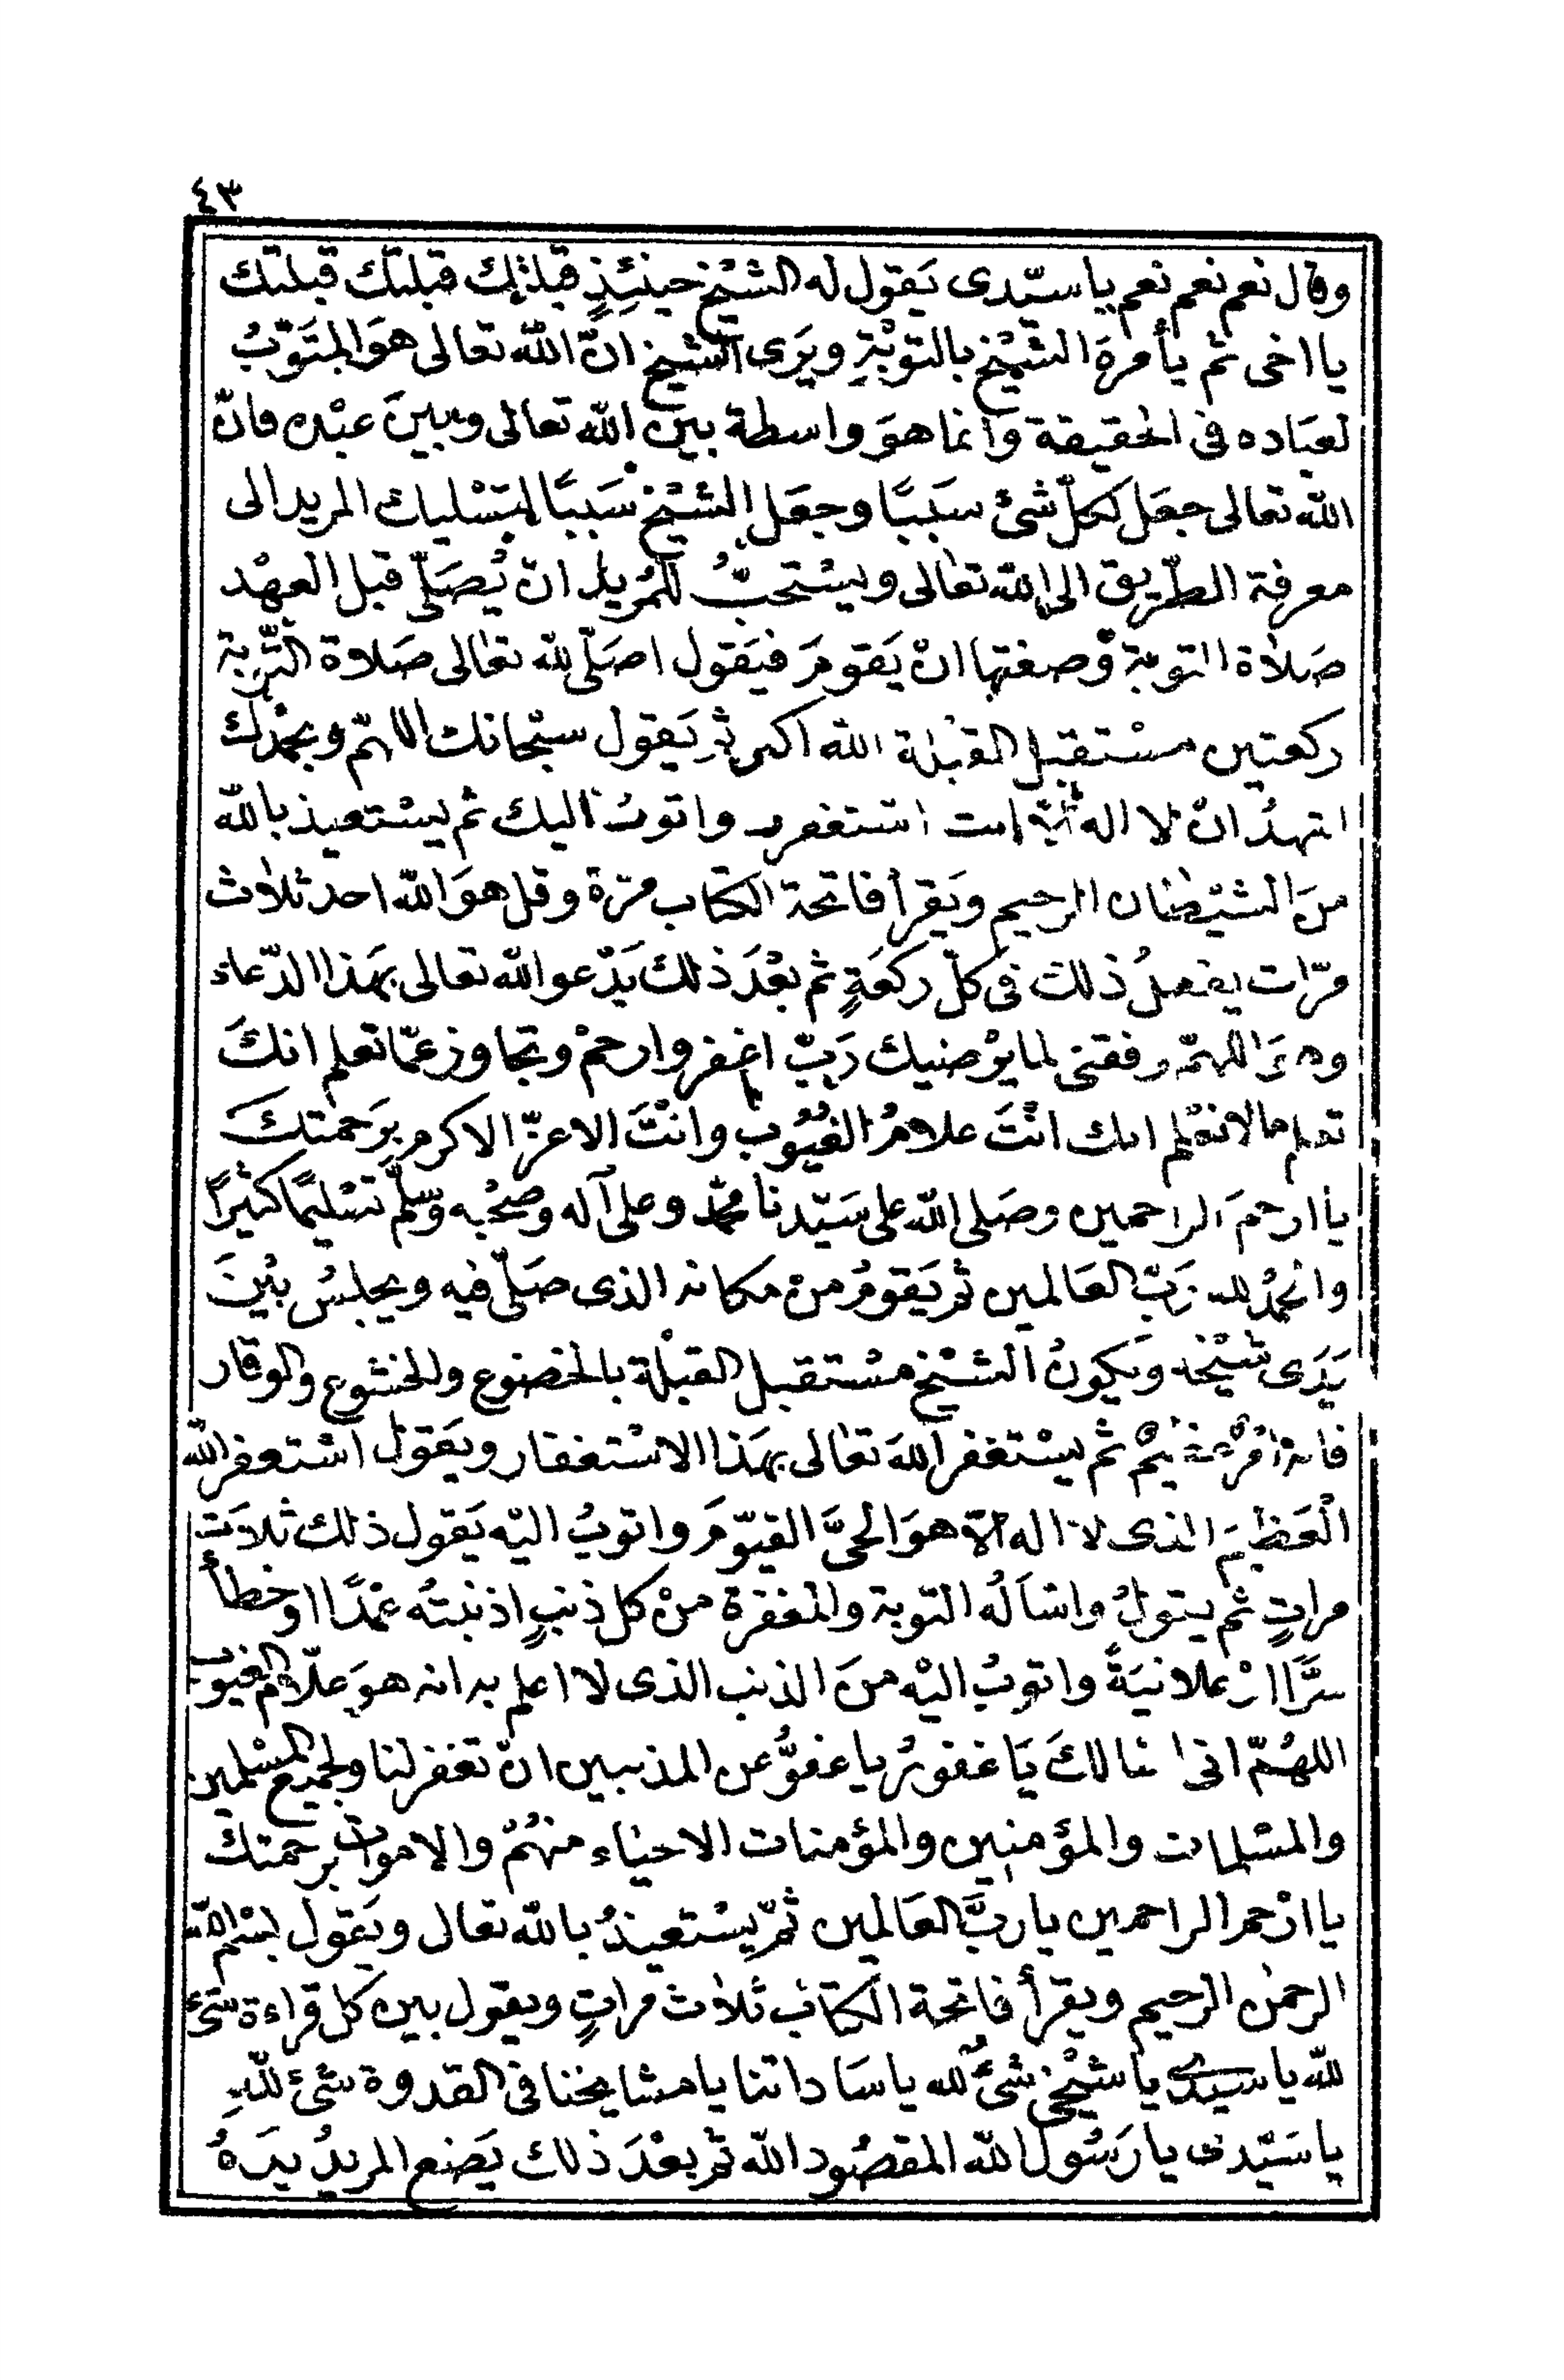 ٤٣
وقال نعم نعم نعم ياسيّدى يَقول له الشيْخ حينئِذٍ قبلتك قبلتك قبلتك
يا اخى ثم يأمرهَ الشيْخ بالتوْبَةِ ويَرى الشيخ انّ الله تعالى هوَ المتَوّبُ
لعبَاده فى الحقيقة وانما هوَ واسطة بيْن الله تعالى وبينَ عبْده فانّ
الله تعالى جعَل لكلّ شئ سَببًا وجعَل الشيْخ سَببًا لتسْليك المريد الى
معرفة الطّريق الى الله تعالى ويسْتحبُّ للمُريد انْ يُصَلّى قبل العهْد
صَلاٰة التوبة وصفتها انْ يَقومَ فيَقول اصَلّى لله تعالى صَلاوة التّوبة
ركعتين مسْتقبل القبْلة الله اكبر ثم يَقول سبْحانك اللهمّ وبحمْدك
اشهدُ انْ لا اله انت استغفرك واتوبُ اليك ثم يسْتعيذ بالله
منَ الشيْطٰان الرحيم ويَقرأ فاتحة الكتاب مرّة وقل هوَ الله احد ثلاٰث
مرّات يفعلُ ذلك فى كلّ ركعَةٍ ثم بعْدَ ذلك يَدْعو الله تعالى بهَذا الدّعاء
وهوَ اللهمّ وفقنى لما يرْضيك رَبّ اغفر وارحمْ وتجاوز عمّا تعلم انكَ
تعلم مالا نعْلم انك انْتَ علامُ الغيُوب وانْتَ الاعزّ الاكرم بِرَحمتكَ
يا ارحمَ الراحمين وصَلى الله على سَيّدنا محمّد وعلى آله وصحْبه وسلّم تسْليمًا كثيرًا
والحمْدُ لله رَبّ العَالمين ثم يَقومُ منْ مكانه الذى صَلّى فيه ويجلسُ بيْنَ
يَدَى شيْخه وَيكونُ الشيْخ مسْتقبل القبْلة بالخضوع والخشوع والوقار
فانه ثم يسْتغفر اللهَ تعالى بهَذا الاسْتغفار ويقول اسْتغفر الله
الْعَظيمَ الذى لا اله الاّ هوَ الحىَّ القيّومَ واتوبُ اليْه يَقول ذلك ثلاثَ
مراتٍ ثم يقولُ واسْاَلُه التوبة والمغفرة منْ كل ذنبٍ اذنبتُه عمْدًا اوخطأً
سرًّا اوْ علانيَةً واتوبُ اليْه منَ الذنب الذى لا اعلم به انه هوَ علّام الغيوب
اللهُمّ انى اسْالكَ يَا غفورُ ياعفوُّ عن المذنبين انْ تغفر لنا ولجميع المسْلمين
والمسْلمات والمؤمنين والمؤمنات الاحيَاء منهُمْ والاموات برحمتك
يا ارْحم الراحمين يا ربَّ العَالمين ثمّ يسْتعيذُ بالله تعالى ويَقول بسْم الله
الرحمٰن الرحيم ويقرأ فاتحة الكتاب ثلاٰث مراتٍ ويقول بين كل قراءة شئ
لله يا سَيّدى يا شيْخى شئٌ لله ياسَاداتنا يا مشايخنا فى القدوة شئ للهِ
يا سَيّدى يا رَسُول الله المقصُود الله ثم بعْدَ ذلك يَضع المريدُ يدَهُ